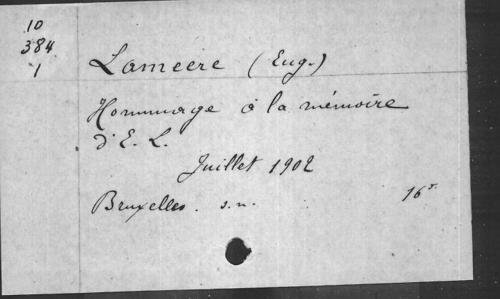 10
384
1
Lameere (Eug.)
Hommage à la mémoire
d'E. L.
Juillet 1902
Bruxelles. s.n. 16°.